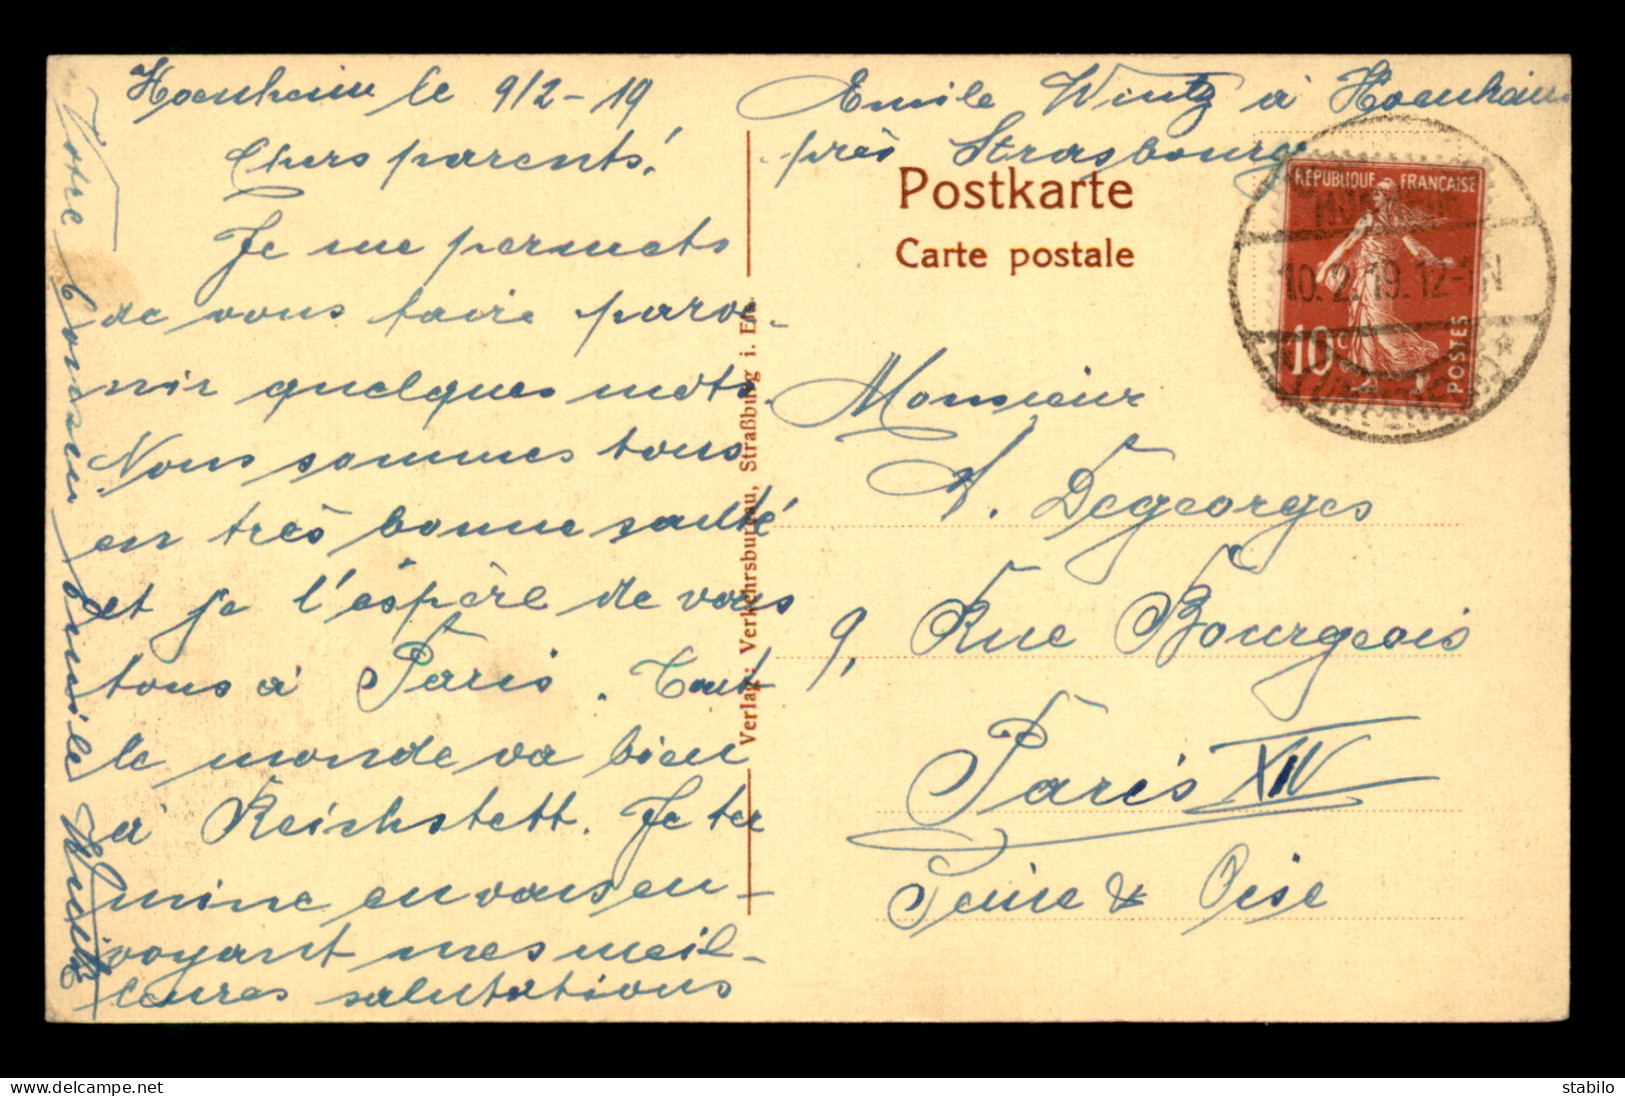 Hoenheim le 9/2-19
Chers parents!
Je me permets
de vous faire parve-
nir quelques mots.
Nous sommes tous
en très bonne santé
et je l'éspère de vous
tous à Paris. Tout
le monde va bien
à Reichstett. Je ter
mine en vous en-
voyant mes meil-
leures salutations
Votre cousin Emile Wintz
Emile Wintz à Hoenheim
près Strasbourg
Postkarte
Carte postale
RÉPUBLIQUE FRANÇAISE
10c
POSTES
10.2.19.12-1N
Monsieur
A. Degeorges
9, Rue Bourgeois
Paris XIV
Seine & Oise
Verlag: Verkehrsbureau, Straßburg i. Els.
delcampe.net
stabilo